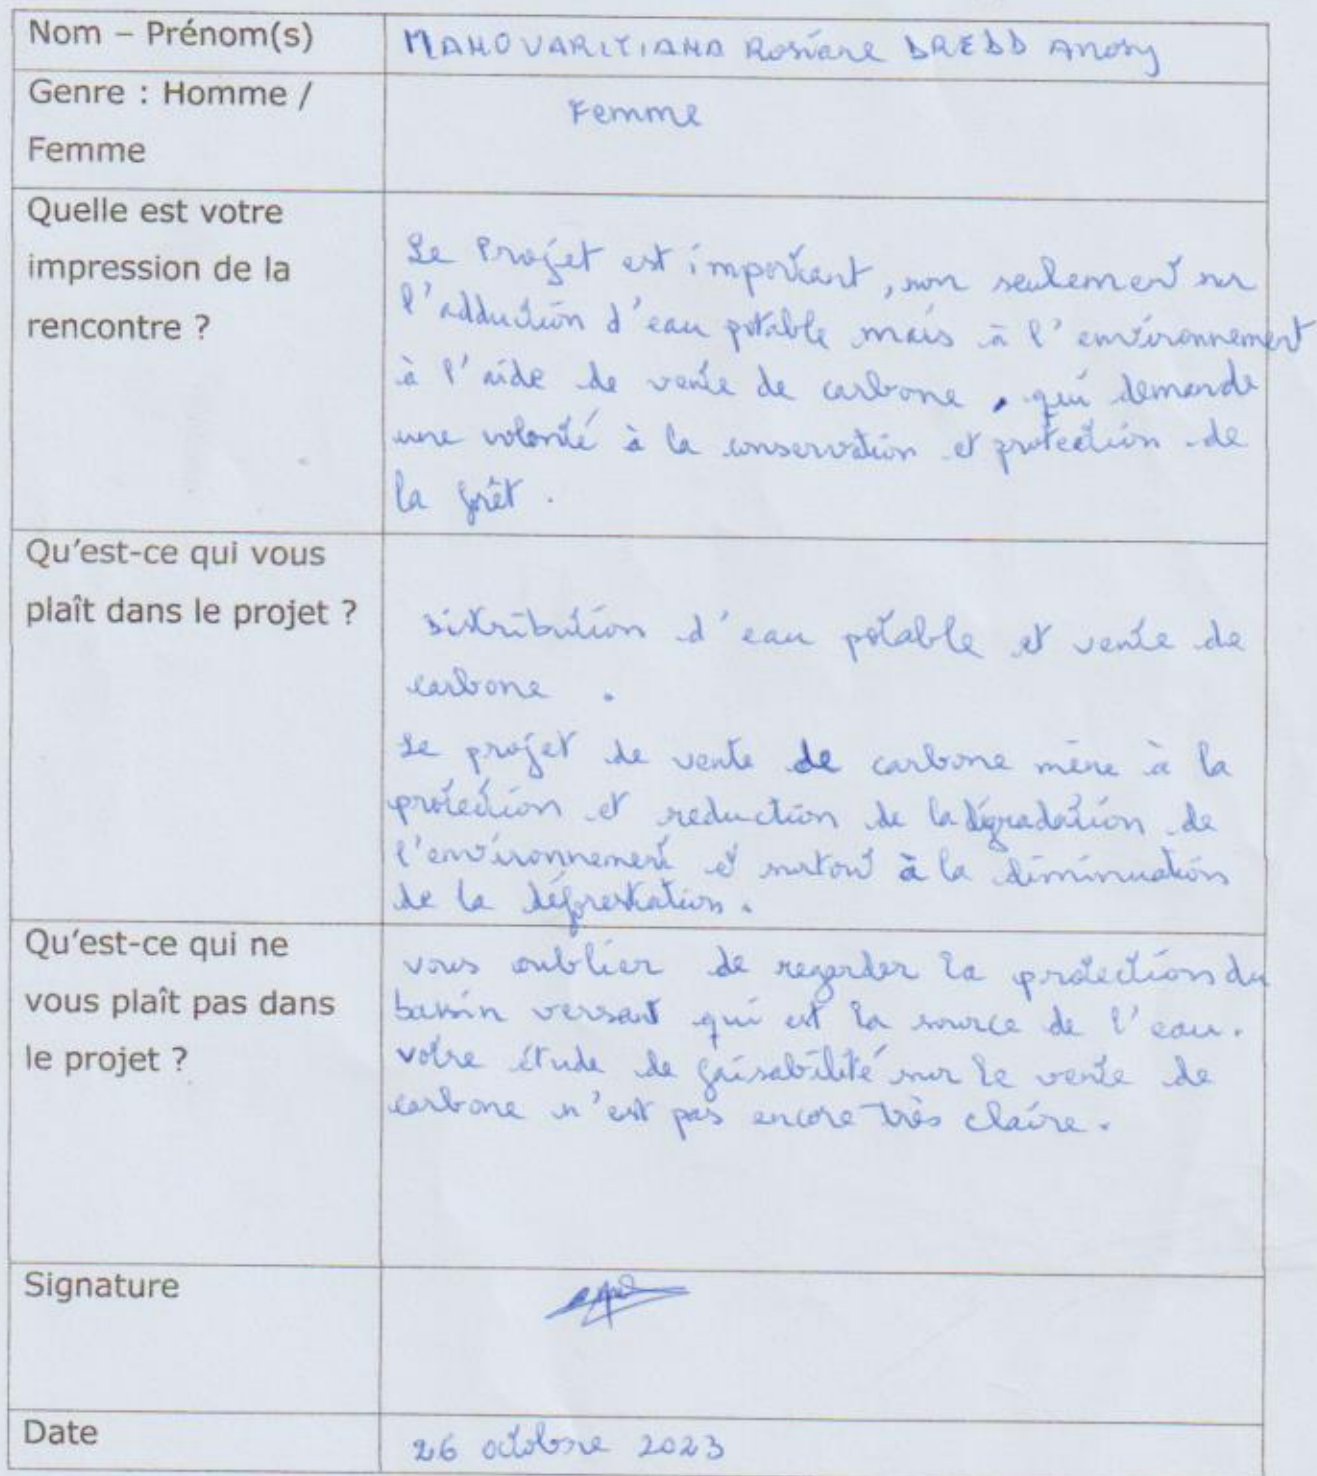 Nom – Prénom(s)
MAHOVARITIANA Rosiane DREDD Anosy
Genre : Homme /
Femme
Femme
Quelle est votre
impression de la
rencontre ?
Le Projet est important, non seulement sur
l'adduction d'eau potable mais à l'environnement
à l'aide de vente de carbone, qui demande
une volonté à la conservation et protection de
la forêt.
Qu'est-ce qui vous
plaît dans le projet ?
Distribution d'eau potable et vente de
carbone.
Le projet de vente de carbone mène à la
protection et reduction de la dégradation de
l'environnement et surtout à la diminuation
de la déforestation.
Qu'est-ce qui ne
vous plaît pas dans
le projet ?
vous oublier de regarder la protection du
bassin versant qui est la source de l'eau.
votre étude de faisabilité sur le vente de
carbone n'est pas encore très claire.
Signature
Date
26 octobre 2023